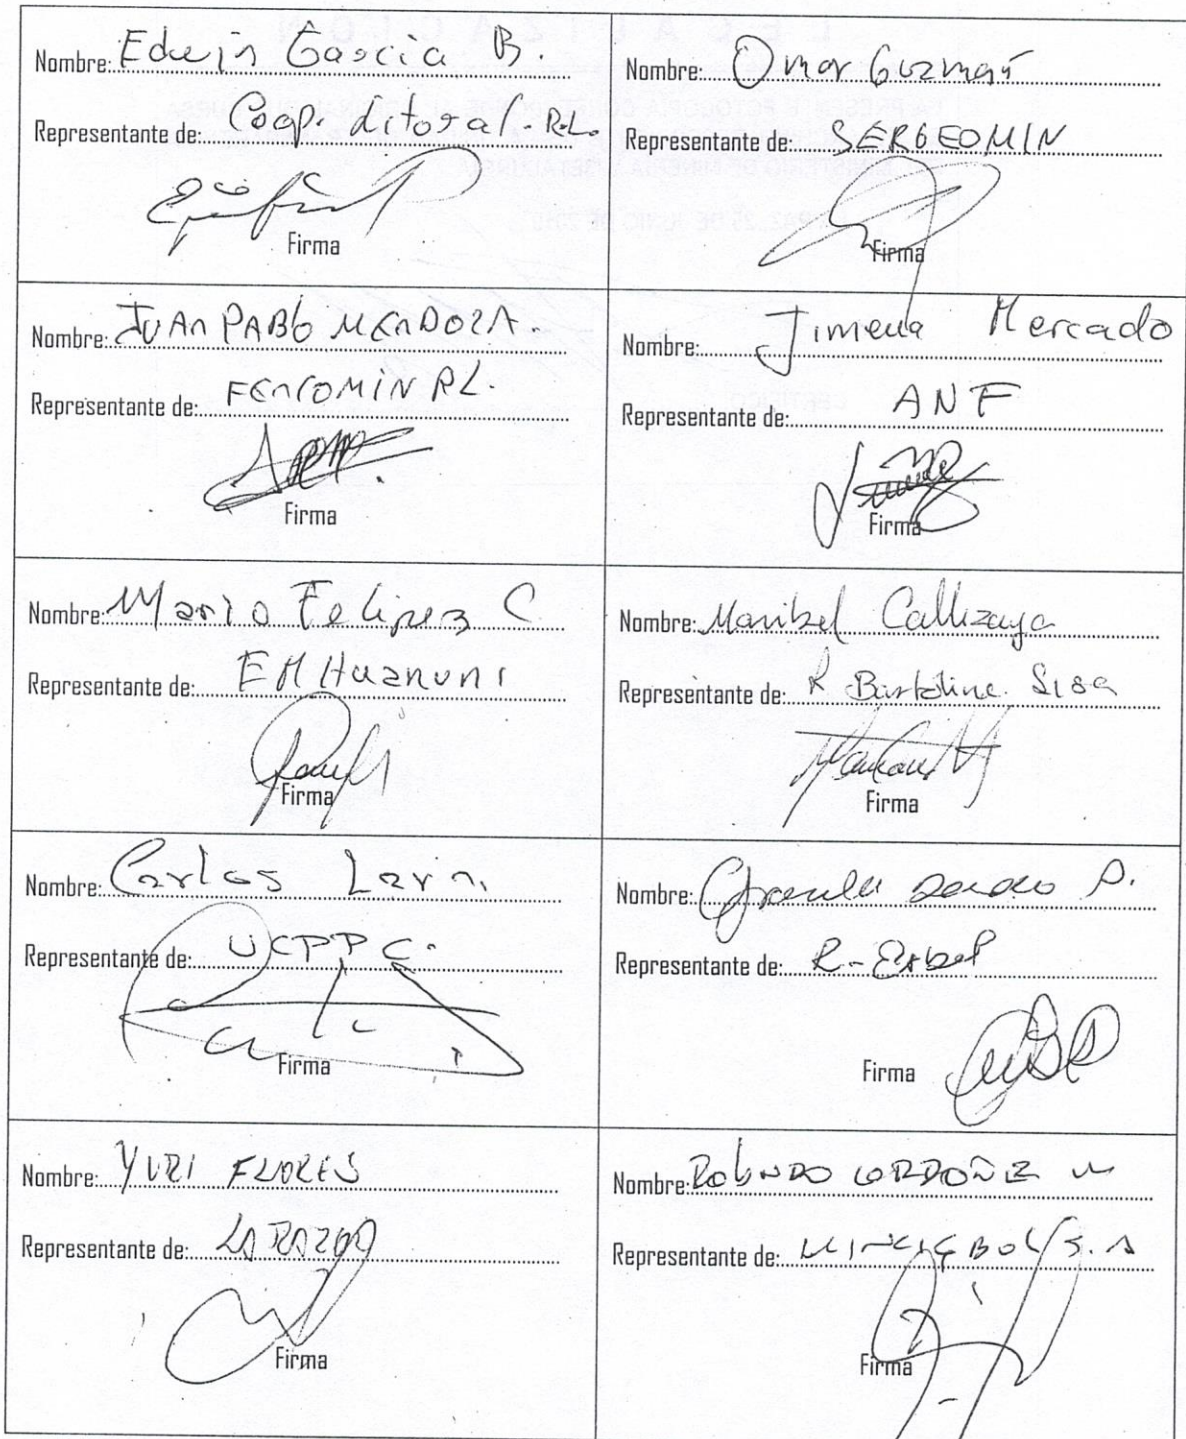 Nombre: Edwin Garcia B.
Representante de: Coop. Litoral. R.L.
Firma
Nombre: Omar Guzmán
Representante de: SERGEOMIN
Firma
Nombre: JUAN PABlO MENDOZA.
Representante de: FENCOMIN RL.
Firma
Nombre: Jimena Mercado
Representante de: ANF
Firma
Nombre: Mario Felipez C
Representante de: EM Huanuni
Firma
Nombre: Maribel Callizaya
Representante de: R Bartolina Sisa
Firma
Nombre: Carlos
Representante de: UCPPC.
Firma
Nombre: P.
Representante de:
Firma
Nombre: YURI FLORES
Representante de: LA RAZON
Firma
Nombre: ROLANDO ORDOÑEZ
Representante de: S.A
Firma